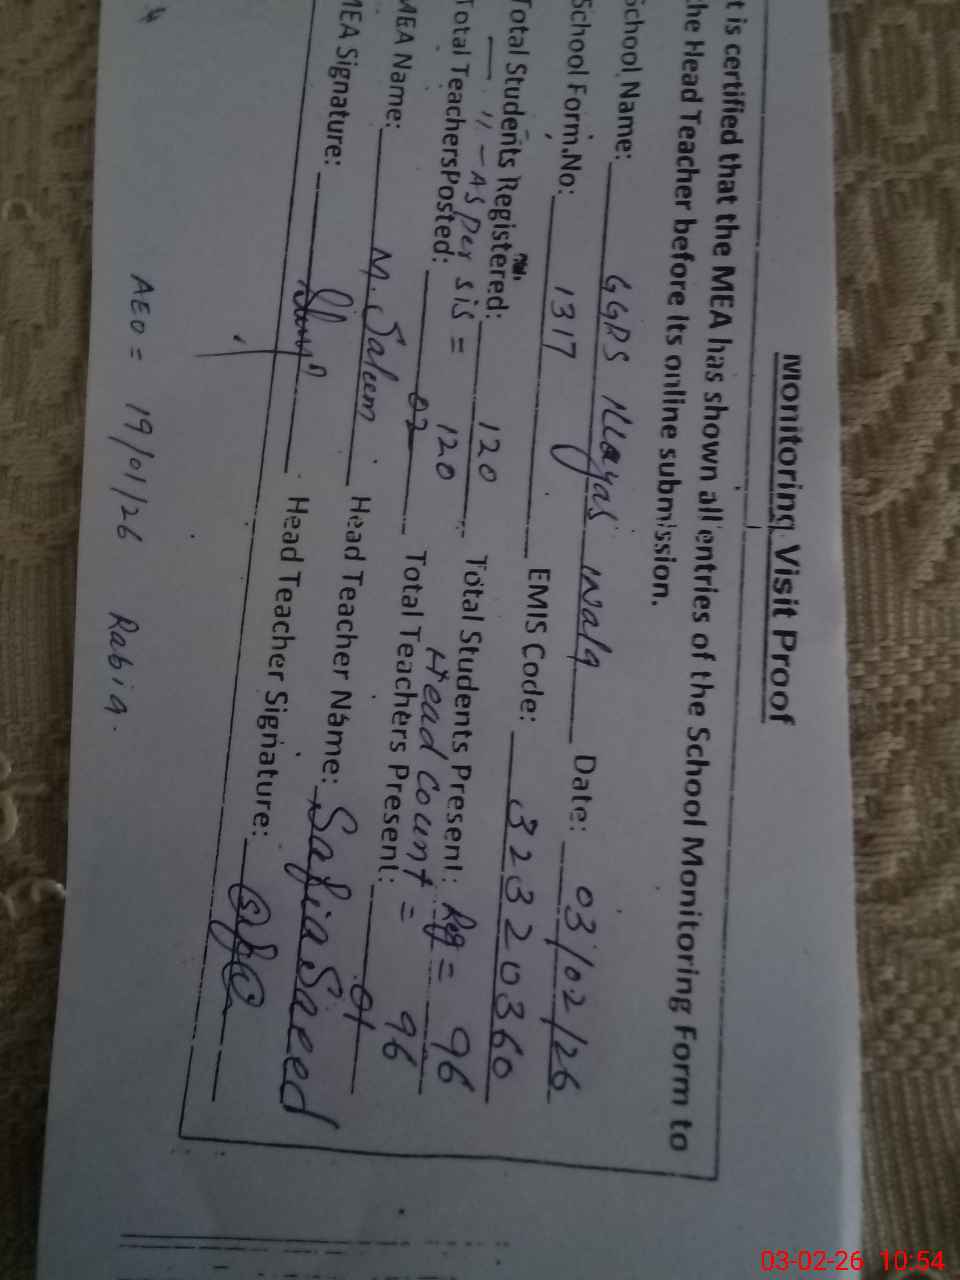 Monitoring Visit Proof
t is certified that the MEA has shown all entries of the School Monitoring Form to
he Head Teacher before its online submission.
School Name: GGPS Illayas Wala Date: 03/02/26
School Form.No: 1317 EMIS Code: 32320360
Total Students Registered: 120 Total Students Present: Reg = 96
— 11 - As Per SIS = 120 Head Count = 96
Total Teachers Posted: 02 Total Teachers Present: 01
MEA Name: M. Saleem Head Teacher Name: Safia Saeed
MEA Signature: Head Teacher Signature:
AEO = 19/01/26 Rabia.
03-02-26 10:54